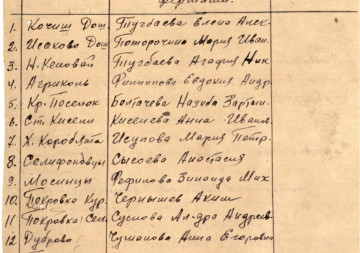 фермами.
1. Кочиш Дош. Тугбаева Елена Алек-
2. Исаково Дош Поторочина Мария Иван.
3. Н. Кеповай Тугбаева Агафия Ник
4. Агриколь Филиппова Евдокия Андр.
5. Кр. Поселок Болтачева Назиба
6. Ст. Кисели Киселева Анна Иван.
7. Х. Коробята Исупова Мария Петр.
8. Селифоновцы Сысоева Анастасия
9. Мосинцы Фефилова Зинаида Мих
10. Покровка Кур. Чернышев Аким
11 Покровка Сем Суслова Ал-дра Андреев-
12 Дуброво Чушанова Анна Егоровна